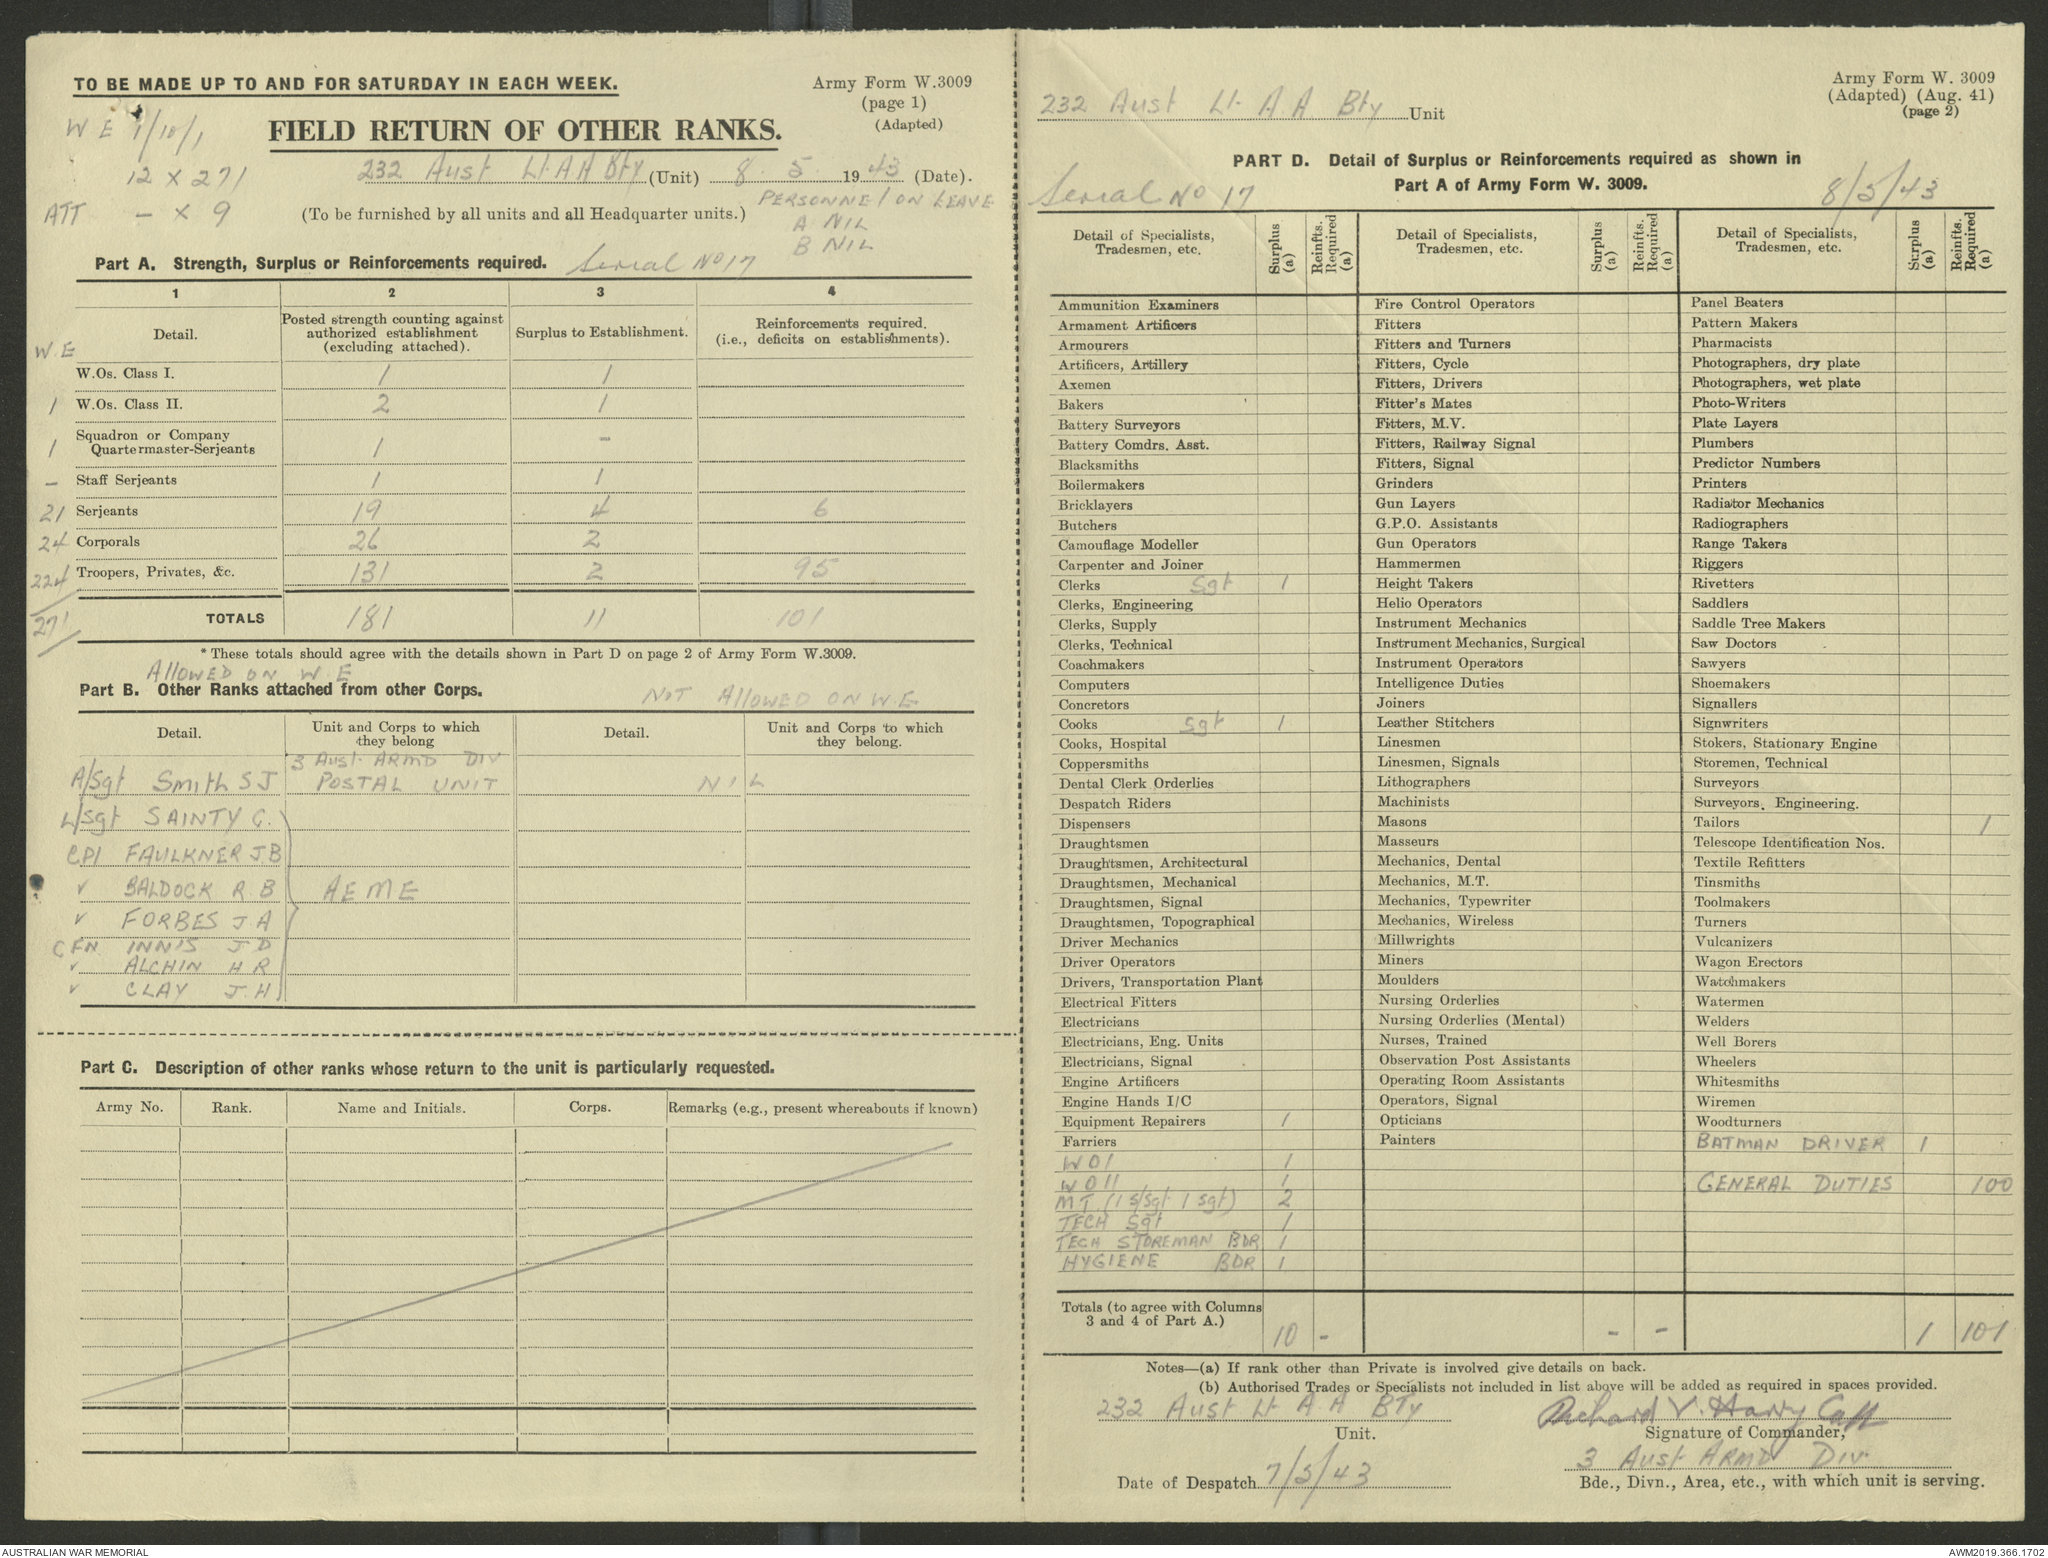 TO BE MADE UP TO AND FOR SATURDAY IN EACH WEEK.
Army Form W.3009
(page 1)
(Adapted)
W E 1/10/1
12 x 271
ATT - x 9
FIELD RETURN OF OTHER RANKS.
232 Aust Lt A A Bty (Unit) 8. 5. 1943 (Date).
(To be furnished by all units and all Headquarter units.)
PERSONNEL ON LEAVE
A NIL
B NIL
Part A. Strength, Surplus or Reinforcements required. Serial No 17
1 2 3 4
Detail. Posted strength counting against authorized establishment (excluding attached). Surplus to Establishment. Reinforcements required. (i.e., deficits on establishments).
W.E
W.Os. Class I. 1 1
1 W.Os. Class II. 2 1
1 Squadron or Company Quartermaster-Serjeants 1 -
- Staff Serjeants 1 1
21 Serjeants 19 4 6
24 Corporals 26 2
224 Troopers, Privates, &c. 131 2 95
271 TOTALS 181 11 101
* These totals should agree with the details shown in Part D on page 2 of Army Form W.3009.
ALLOWED ON W.E
Part B. Other Ranks attached from other Corps.
NOT ALLOWED ON W.E
Detail. Unit and Corps to which they belong Detail. Unit and Corps to which they belong.
A/Sgt Smith S J 3 Aust. ARMD DIV POSTAL UNIT NIL
L/Sgt SAINTY C.
CPl FAULKNER J B
" BALDOCK R B AEME
" FORBES J A
CFN INNIS J D
" ALCHIN H R
" CLAY J. H
Part C. Description of other ranks whose return to the unit is particularly requested.
Army No. Rank. Name and Initials. Corps. Remarks (e.g., present whereabouts if known)
Army Form W. 3009
(Adapted) (Aug. 41)
(page 2)
232 Aust Lt A A Bty Unit
PART D. Detail of Surplus or Reinforcements required as shown in
Part A of Army Form W. 3009.
Serial No 17
8/5/43
Detail of Specialists, Tradesmen, etc. Surplus (a) Reinfts. Required (a)
Ammunition Examiners
Armament Artificers
Armourers
Artificers, Artillery
Axemen
Bakers
Battery Surveyors
Battery Comdrs. Asst.
Blacksmiths
Boilermakers
Bricklayers
Butchers
Camouflage Modeller
Carpenter and Joiner
Clerks Sgt 1
Clerks, Engineering
Clerks, Supply
Clerks, Technical
Coachmakers
Computers
Concretors
Cooks Sgt 1
Cooks, Hospital
Coppersmiths
Dental Clerk Orderlies
Despatch Riders
Dispensers
Draughtsmen
Draughtsmen, Architectural
Draughtsmen, Mechanical
Draughtsmen, Signal
Draughtsmen, Topographical
Driver Mechanics
Driver Operators
Drivers, Transportation Plant
Electrical Fitters
Electricians
Electricians, Eng. Units
Electricians, Signal
Engine Artificers
Engine Hands I/C
Equipment Repairers 1
Farriers
W O I 1
W O II 1
M T (1 S/Sgt 1 Sgt) 2
TECH Sgt 1
TECH STOREMAN BDR 1
HYGIENE BDR 1
Detail of Specialists, Tradesmen, etc. Surplus (a) Reinfts. Required (a)
Fire Control Operators
Fitters
Fitters and Turners
Fitters, Cycle
Fitters, Drivers
Fitter's Mates
Fitters, M.V.
Fitters, Railway Signal
Fitters, Signal
Grinders
Gun Layers
G.P.O. Assistants
Gun Operators
Hammermen
Height Takers
Helio Operators
Instrument Mechanics
Instrument Mechanics, Surgical
Instrument Operators
Intelligence Duties
Joiners
Leather Stitchers
Linesmen
Linesmen, Signals
Lithographers
Machinists
Masons
Masseurs
Mechanics, Dental
Mechanics, M.T.
Mechanics, Typewriter
Mechanics, Wireless
Millwrights
Miners
Moulders
Nursing Orderlies
Nursing Orderlies (Mental)
Nurses, Trained
Observation Post Assistants
Operating Room Assistants
Operators, Signal
Opticians
Painters
Detail of Specialists, Tradesmen, etc. Surplus (a) Reinfts. Required (a)
Panel Beaters
Pattern Makers
Pharmacists
Photographers, dry plate
Photographers, wet plate
Photo-Writers
Plate Layers
Plumbers
Predictor Numbers
Printers
Radiator Mechanics
Radiographers
Range Takers
Riggers
Rivetters
Saddlers
Saddle Tree Makers
Saw Doctors
Sawyers
Shoemakers
Signallers
Signwriters
Stokers, Stationary Engine
Storemen, Technical
Surveyors
Surveyors, Engineering.
Tailors 1
Telescope Identification Nos.
Textile Refitters
Tinsmiths
Toolmakers
Turners
Vulcanizers
Wagon Erectors
Watchmakers
Watermen
Welders
Well Borers
Wheelers
Whitesmiths
Wiremen
Woodturners
BATMAN DRIVER 1
GENERAL DUTIES 100
Totals (to agree with Columns 3 and 4 of Part A.) 10 - - - 1 101
Notes—(a) If rank other than Private is involved give details on back.
(b) Authorised Trades or Specialists not included in list above will be added as required in spaces provided.
232 Aust Lt A A BTy
Unit.
Richard V. Harry Capt
Signature of Commander,
3 Aust ARMD Div
Date of Despatch 7/5/43
Bde., Divn., Area, etc., with which unit is serving.
AUSTRALIAN WAR MEMORIAL
AWM2019.366.1702